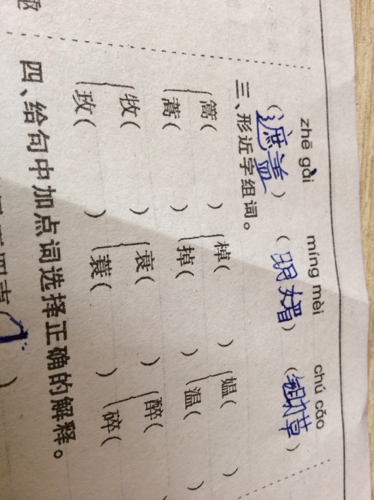 zhē gài míng mèi chú cǎo
(遮盖) (明媚) (锄草)
三、形近字组词。
篙( ) 棹( ) 媪( )
蒿( ) 掉( ) 温( )
牧( ) 衰( ) 醉(
玫( ) 蓑( ) 碎(
四、给句中加点词选择正确的解释。